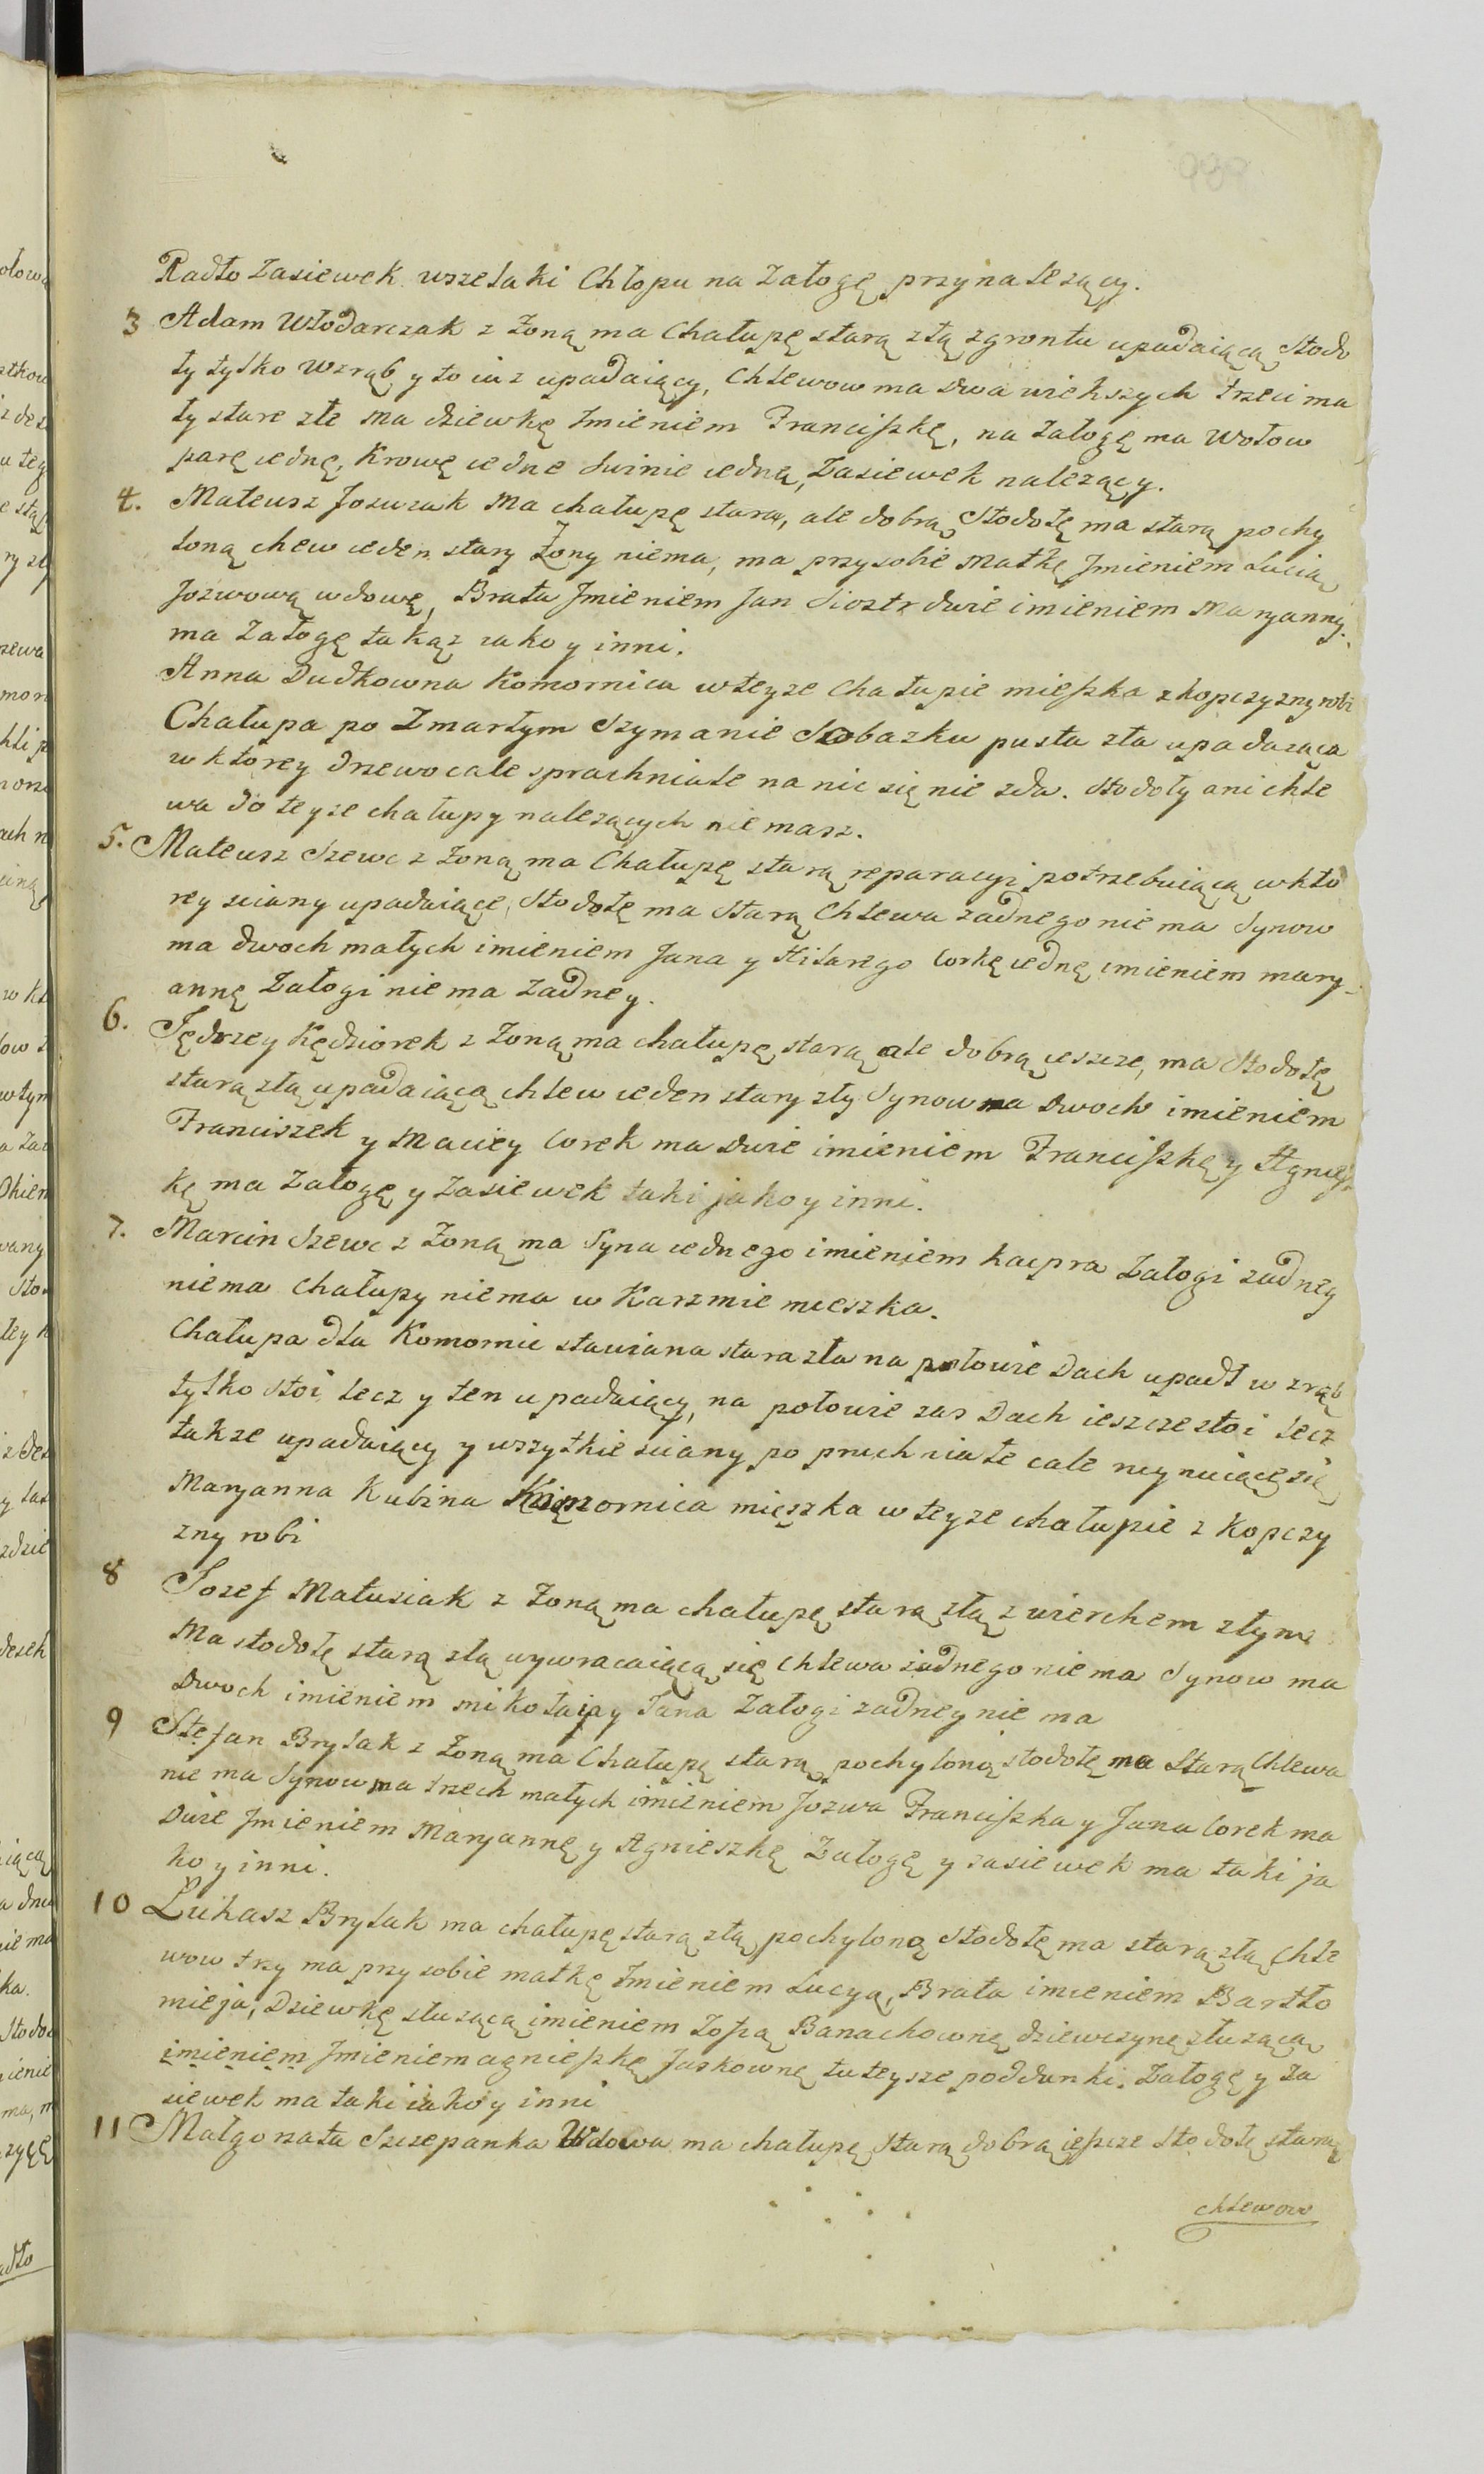 Radło Zasiewek wszelaki Chłopu na Załogę przynalezący.
3 Adam Włodarczak z Zoną ma Chałupę starą złą zgrontu upadaiącą Stodo
ły tylko Wzrąb y to iuz upadaiący, Chlewow ma dwa wiekszych trzeci ma
ły stare złe ma dziewkę Imieniem Franciszkę, na Załogę ma Wołow
parę iednę, Krowę iedne Swinie iedną, Zasiewek nalezący.
4. Mateusz Jozwiak Ma chałupę stara, ale dobrą Stodołę ma starą pochy
loną chew ieden stary Zony niema, ma przysobie Matkę Jmieniem Lucią
Jozwową wdowę, Brata Jmieniem Jan Siostr dwie imieniem Maryanny.
ma Załogę takąz iako y inni.
Anna Dudkowna Komornica wteyze Chałupie mieszka z kopczyzny robi
Chałupa po Zmarłym Szymanie Sobazku pusta zła upadaiąca
w ktorey drzewo cale sprachniałe na nic się nie zda. Stodoły ani chle
wa do teyze chałupy nalezących nie masz.
5. Mateusz Szewc z Zoną ma Chałupę starą reparacyi potrzebuiącą wkto
rey sciany upadaiące, Stodołę ma Starą Chlewa zadnego nie ma Synow
ma dwoch małych imieniem Jana y Hilarego Corkę iednę imieniem mary-
annę Załogi nie ma Zadney.
6. Jędrzey Kędziorek z Zoną ma chałupę starą ale dobrą ieszcze, ma Stodołę
starą złą upadaiącą chlew ieden stary zły Synow ma Dwoch imieniem
Franciszek y Maciey Corek ma dwie imieniem Franciszkę y Agniesz
kę ma Załogę y Zasiewek taki jako y inni.
7. Marcin Szewc z Zoną ma Syna iednego imieniem Kacpra Załogi zadney
niema Chałupy niema w Karzmie mieszka.
Chałupa dla Komornic stawiana stara zła na połowie Dach upadł w zrąb
tylko stoi lecz y ten upadaiący, na połowie zas Dach ieszcze stoi lecz
takze upadaiący y wszytkie sciany po pruchniałe cale
Maryanna Kubina Komornica mięszka w teyze chałupie z Kopczy
zny robi
8 Jozef Matusiak z Zoną ma chałupę starą złą z wierchem złym
Ma stodołę starą złą wywracaiącą się Chlewa zadnego nie ma Synow ma
Dwoch imieniem Mikołaia y Jana Załogi zadney nie ma
9 Stefan Brylak z Zoną ma Chałupę starą pochyloną stodołę ma Starą Chlewa
nie ma Synow ma trzech małych imieniem Jozwa Franciszka y Jana Corek ma
Dwie Jmieniem Maryannę y Agnieszkę Załogę y zasiewek ma taki ja
ko y inni.
10 Łukasz Brylak ma chałupę starą złą pochyloną Stodołę ma starą złą Chle
wow trzy ma przy sobie matkę Imieniem Lucyą, Brata imieniem Bartło
mieja, Dziewkę słuzącą imieniem Zofią Banachownę dziewczynę słuzącą
imieniem Jmieniem agnieszkę Jaskownę tuteysze poddanki. Załogę y Za
siewek ma taki iako y inni
11 Małgorzata Szczepanka Wdowa ma chałupę Starą dobrą ieszcze Stodołę starą
chlewow